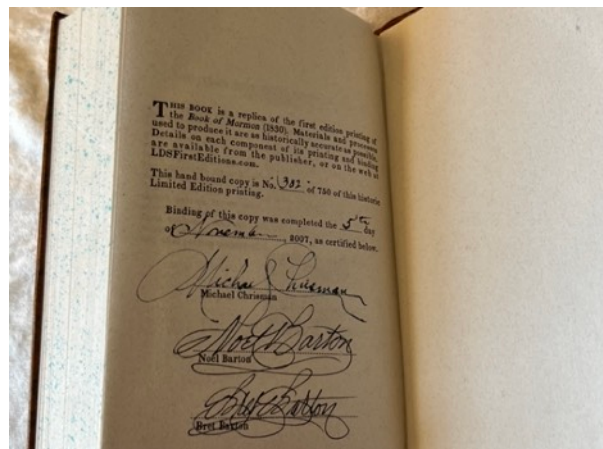 THIS BOOK is a replica of the first edition printing of
the Book of Mormon (1830). Materials and processes
used to produce it are as historically accurate as possible.
Details on each component of its printing and binding
are available from the publisher, or on the web at
LDSFirstEditions.com.
This hand bound copy is No. 382 of 750 of this historic
Limited Edition printing.
Binding of this copy was completed the 5th day
of November, 2007, as certified below.
Michael Chrisman
Michael Chrisman
Noel Barton
Noel Barton
Bret Barton
Bret Barton